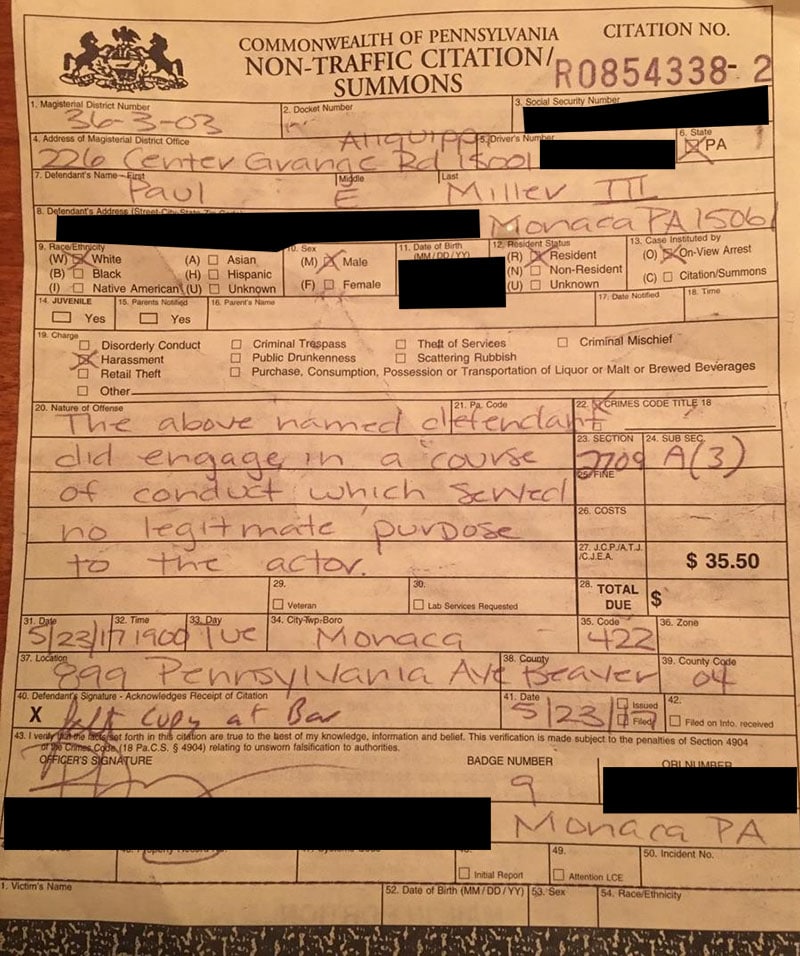 COMMONWEALTH OF PENNSYLVANIA
NON-TRAFFIC CITATION/
SUMMONS
CITATION NO.
R0854338-2
1. Magisterial District Number
36-3-03
2. Docket Number
3. Social Security Number
4. Address of Magisterial District Office
226 Center Grange Rd Aliquippa 15001
5. Driver's Number
6. State
PA
7. Defendant's Name - First
Paul
Middle
E
Last
Miller III
8. Defendant's Address (Street-City-State-Zip Code)
Monaca PA 15061
9. Race/Ethnicity
(W) White
(A) Asian
(B) Black
(H) Hispanic
(I) Native American
(U) Unknown
10. Sex
(M) Male
(F) Female
11. Date of Birth
(MM/DD/YY)
12. Resident Status
(R) Resident
(N) Non-Resident
(U) Unknown
13. Case Instituted by
(O) On-View Arrest
(C) Citation/Summons
14. JUVENILE
Yes
15. Parents Notified
Yes
16. Parent's Name
17. Date Notified
18. Time
19. Charge
Disorderly Conduct
Criminal Trespass
Theft of Services
Criminal Mischief
Harassment
Public Drunkenness
Scattering Rubbish
Retail Theft
Purchase, Consumption, Possession or Transportation of Liquor or Malt or Brewed Beverages
Other
20. Nature of Offense
21. Pa. Code
22. CRIMES CODE TITLE 18
The above named defendant
did engage in a course
of conduct which served
no legitmate purpose
to the actor.
23. SECTION
2709
24. SUB SEC.
A(3)
25. FINE
26. COSTS
27. J.C.P./A.T.J.
/C.J.E.A.
$ 35.50
28. TOTAL
DUE
$
29.
Veteran
30.
Lab Services Requested
31. Date
5/23/17
32. Time
1900
33. Day
Tue
34. City-Twp-Boro
Monaca
35. Code
422
36. Zone
37. Location
899 Pennsylvania Ave
38. County
Beaver
39. County Code
04
40. Defendant's Signature - Acknowledges Receipt of Citation
X Left Copy at Bar
41. Date
5/23/17
Issued
Filed
42.
Filed on Info. received
43. I verify that the facts set forth in this citation are true to the best of my knowledge, information and belief. This verification is made subject to the penalties of Section 4904
of the Crimes Code (18 Pa.C.S. § 4904) relating to unsworn falsification to authorities.
OFFICER'S SIGNATURE
BADGE NUMBER
9
ORI NUMBER
Monaca PA
Initial Report
49.
Attention LCE
50. Incident No.
1. Victim's Name
52. Date of Birth (MM/DD/YY)
53. Sex
54. Race/Ethnicity